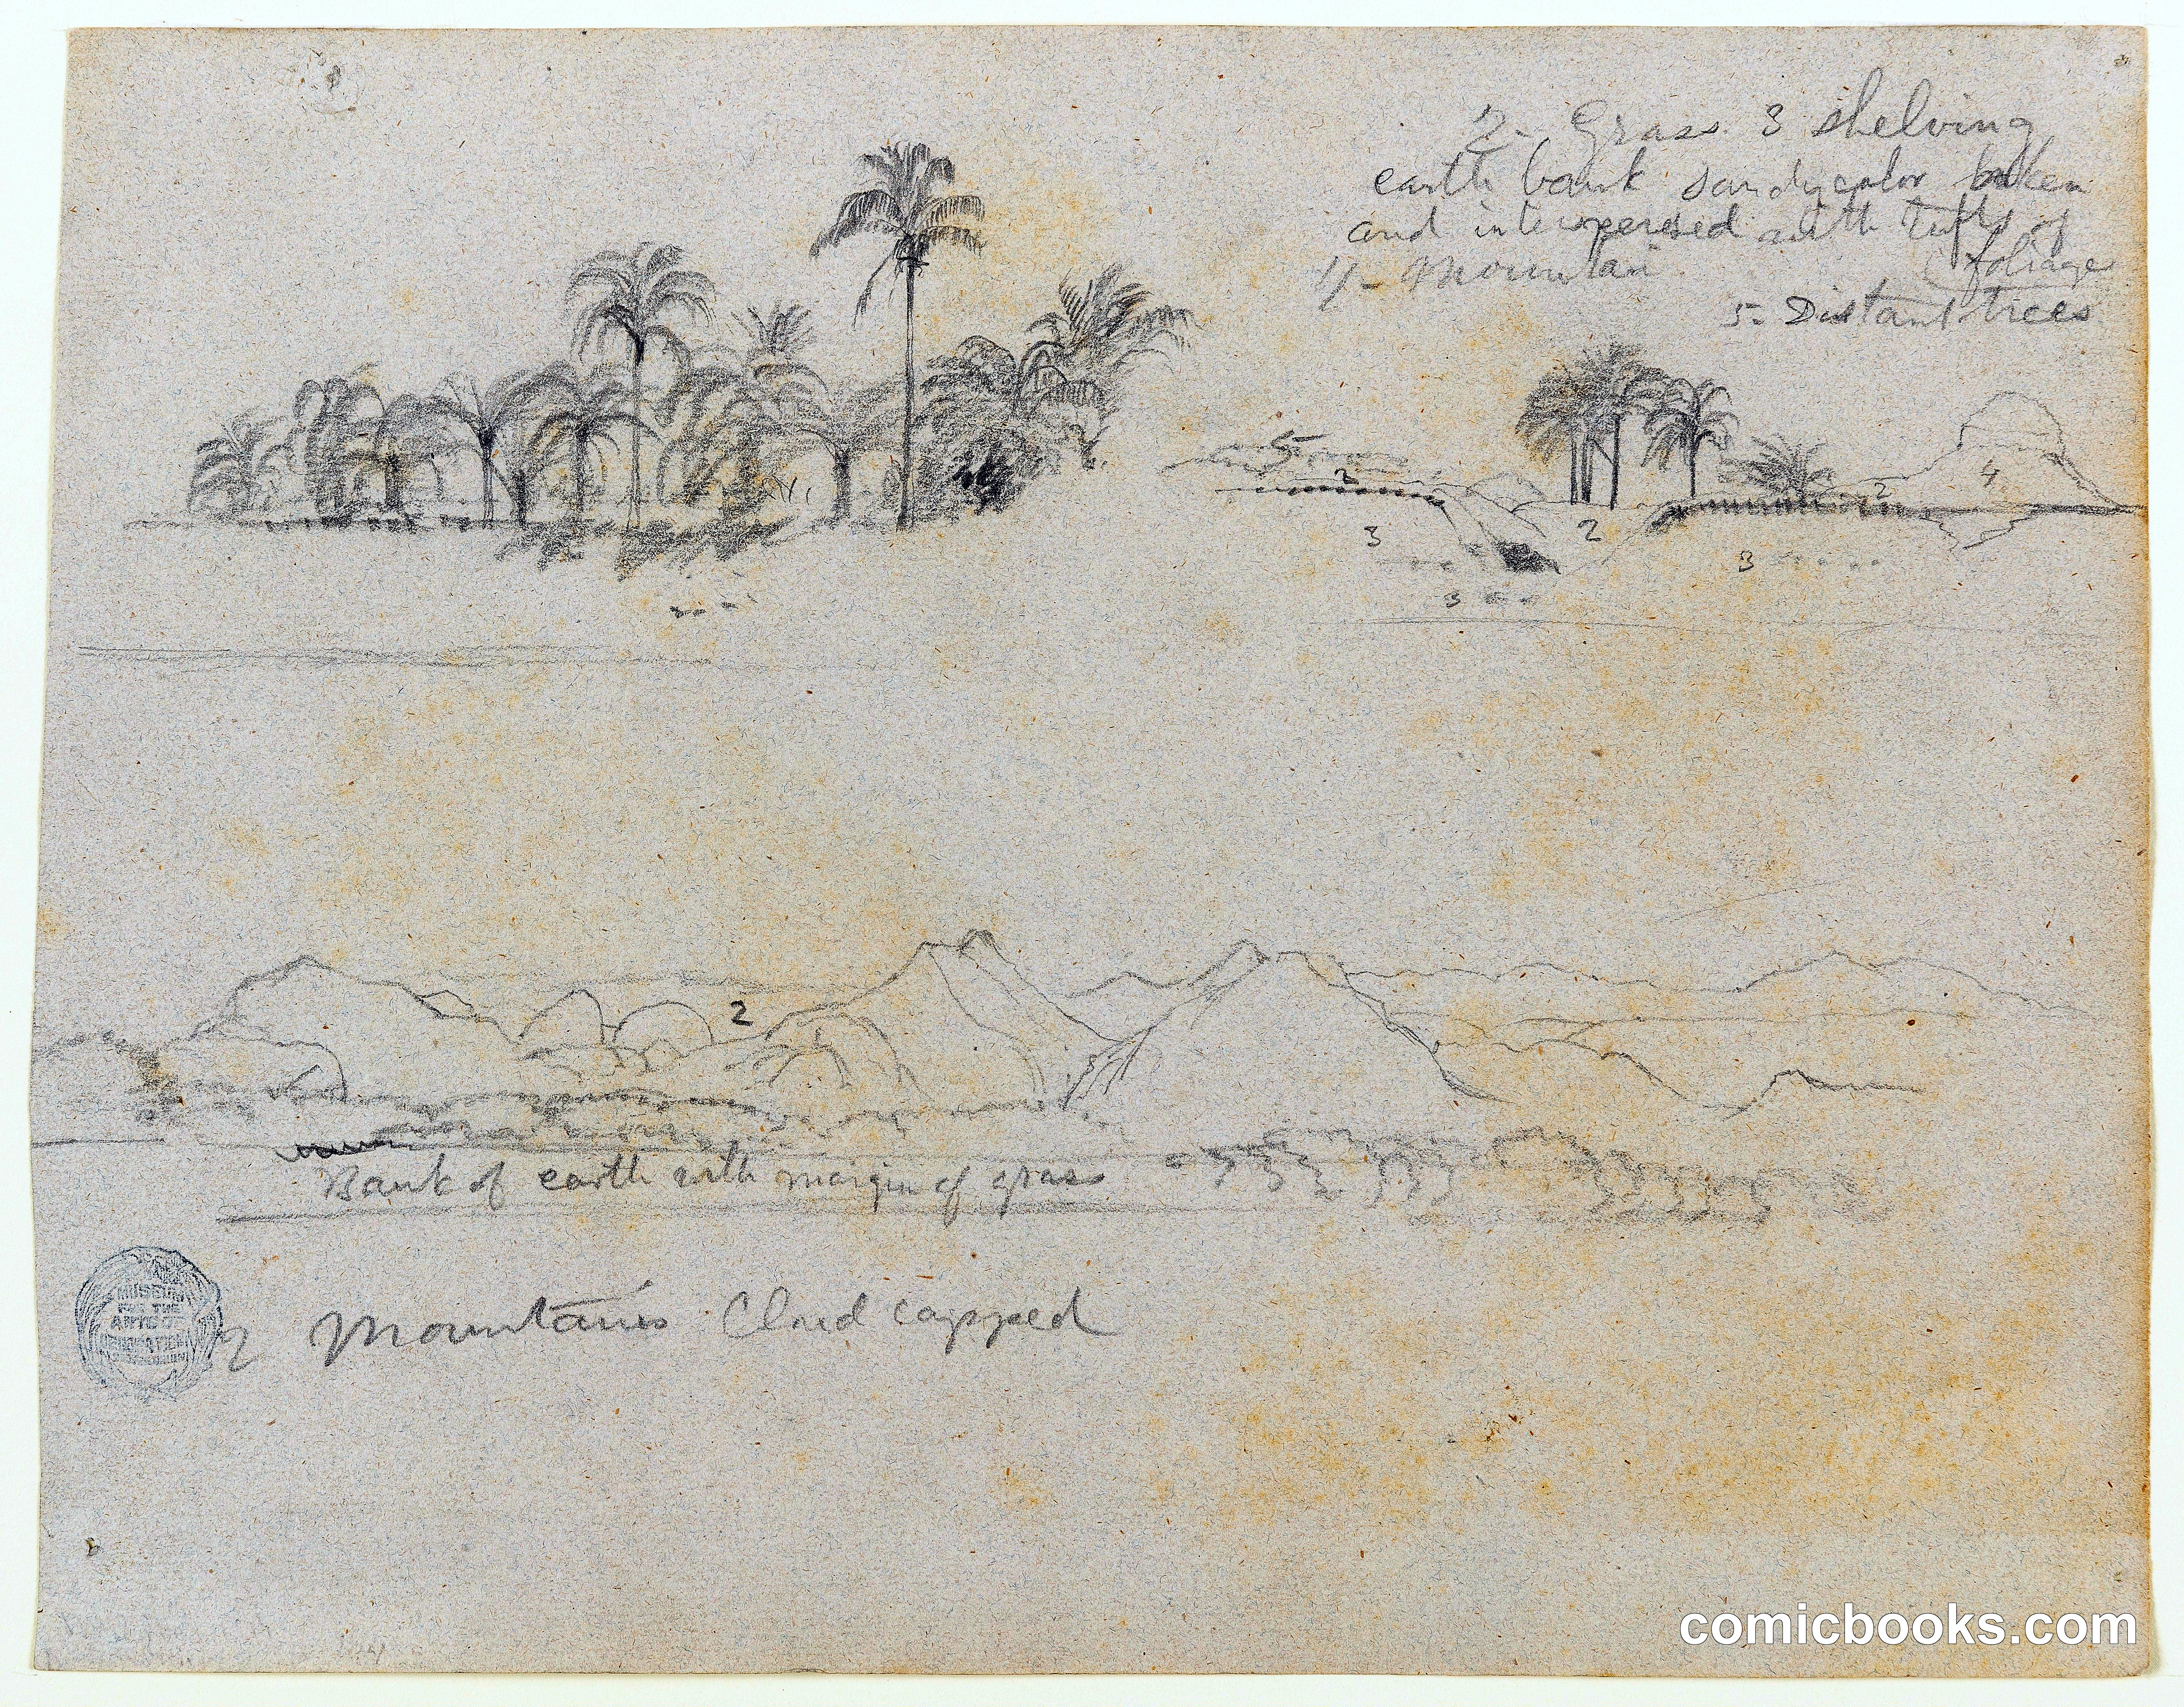 2- Grass. 3 shelving
earth bank sandy color broken
and interspersed with tufts of
foliage
4- Mountain
5- Distant trees
5
2
2
4
3
2
3
3
2
Bank of earth with margin of grass
MUSEUM
FOR THE
ARTS OF
DECORATION
2 Mountains Cloud capped
comicbooks.com